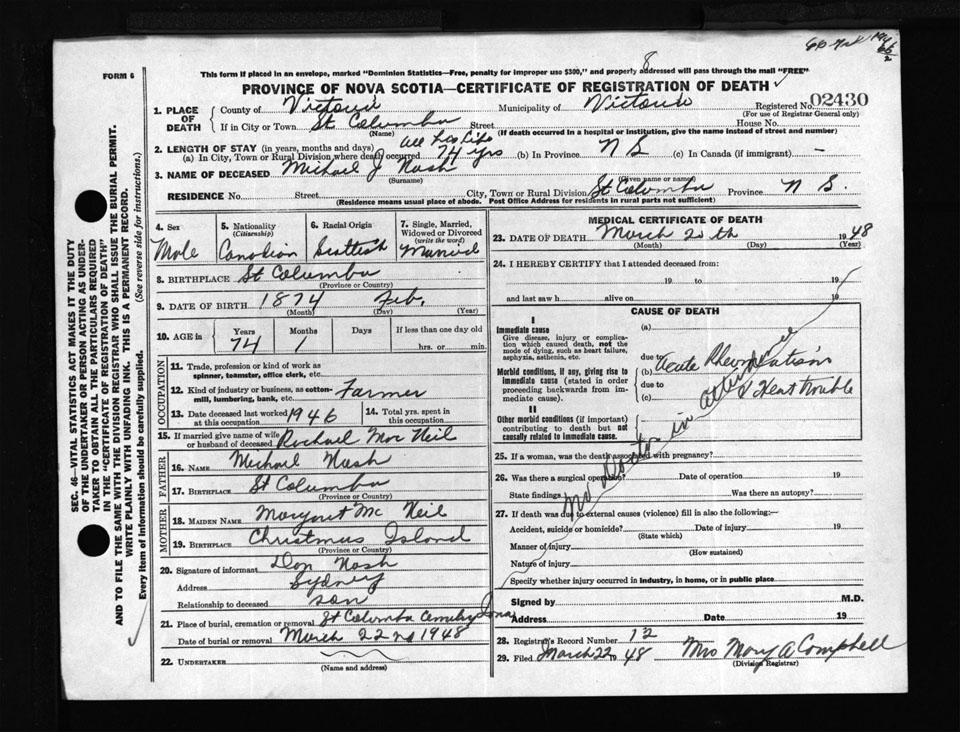 FORM 6
This form if placed in an envelope, marked "Dominion Statistics—Free, penalty for improper use $300," and properly addressed will pass through the mail "FREE"
8
PROVINCE OF NOVA SCOTIA—CERTIFICATE OF REGISTRATION OF DEATH
1. PLACE OF DEATH
County of Victoria Municipality of Victoria Registered No. 02430
(For use of Registrar General only)
If in City or Town St Columba Street House No.
(Name) (If death occurred in a hospital or institution, give the name instead of street and number)
2. LENGTH OF STAY (in years, months and days) all his life
(a) In City, Town or Rural Division where death occurred 74 yrs (b) In Province N S (c) In Canada (if immigrant) —
3. NAME OF DECEASED Michael J Nash
(Surname) (Given name or names)
RESIDENCE No. Street City, Town or Rural Division St Columba Province N S.
(Residence means usual place of abode. Post Office Address for residents in rural parts not sufficient)
4. Sex Male
5. Nationality (Citizenship) Canadian
6. Racial Origin Scottish
7. Single, Married, Widowed or Divorced (write the word) Married
8. BIRTHPLACE St Columba
(Province or Country)
9. DATE OF BIRTH 1874 Feb.
(Month) (Day) (Year)
10. AGE in Years 74 Months 1 Days If less than one day old hrs. or min.
OCCUPATION
11. Trade, profession or kind of work as spinner, teamster, office clerk, etc.
12. Kind of industry or business, as cotton-mill, lumbering, bank, etc. Farmer
13. Date deceased last worked at this occupation 1946
14. Total yrs. spent in this occupation
15. If married give name of wife or husband of deceased Rachael Mac Neil
FATHER
16. NAME Michael Nash
17. BIRTHPLACE St Columba
(Province or Country)
MOTHER
18. MAIDEN NAME Margaret Mc Neil
19. BIRTHPLACE Christmas Island
(Province or Country)
20. Signature of informant Dan Nash
Address Sydney
Relationship to deceased son
21. Place of burial, cremation or removal St Columba Cemetery Iona
Date of burial or removal March 22nd 1948
22. UNDERTAKER
(Name and address)
MEDICAL CERTIFICATE OF DEATH
23. DATE OF DEATH March 20th 1948
(Month) (Day) (Year)
24. I HEREBY CERTIFY that I attended deceased from:
19 to 19
and last saw h alive on 19
CAUSE OF DEATH
I
Immediate cause
Give disease, injury or complication which caused death, not the mode of dying, such as heart failure, asphyxia, asthenia, etc.
Morbid conditions, if any, giving rise to immediate cause (stated in order proceeding backwards from immediate cause).
II
Other morbid conditions (if important) contributing to death but not causally related to immediate cause.
(a)
due to
(b) Acute Rheumatism
due to & Heart trouble
(c)
No Doctor in attendance
25. If a woman, was the death associated with pregnancy?
26. Was there a surgical operation? Date of operation 19
State findings Was there an autopsy?
27. If death was due to external causes (violence) fill in also the following:—
Accident, suicide or homicide? Date of injury 19
(State which)
Manner of injury
(How sustained)
Nature of injury
Specify whether injury occurred in industry, in home, or in public place
Signed by M.D.
Address Date 19
28. Registrar's Record Number 12
29. Filed March 22 1948 Mrs Mary A Campbell
(Division Registrar)
SEC. 46—VITAL STATISTICS ACT MAKES IT THE DUTY
OF THE UNDERTAKER OR PERSON ACTING AS UNDER-
TAKER TO OBTAIN ALL THE PARTICULARS REQUIRED
IN THE "CERTIFICATE OF REGISTRATION OF DEATH"
AND TO FILE THE SAME WITH THE DIVISION REGISTRAR WHO SHALL ISSUE THE BURIAL PERMIT.
WRITE PLAINLY WITH UNFADING INK. THIS IS A PERMANENT RECORD.
Every item of information should be carefully supplied. (See reverse side for instructions.)